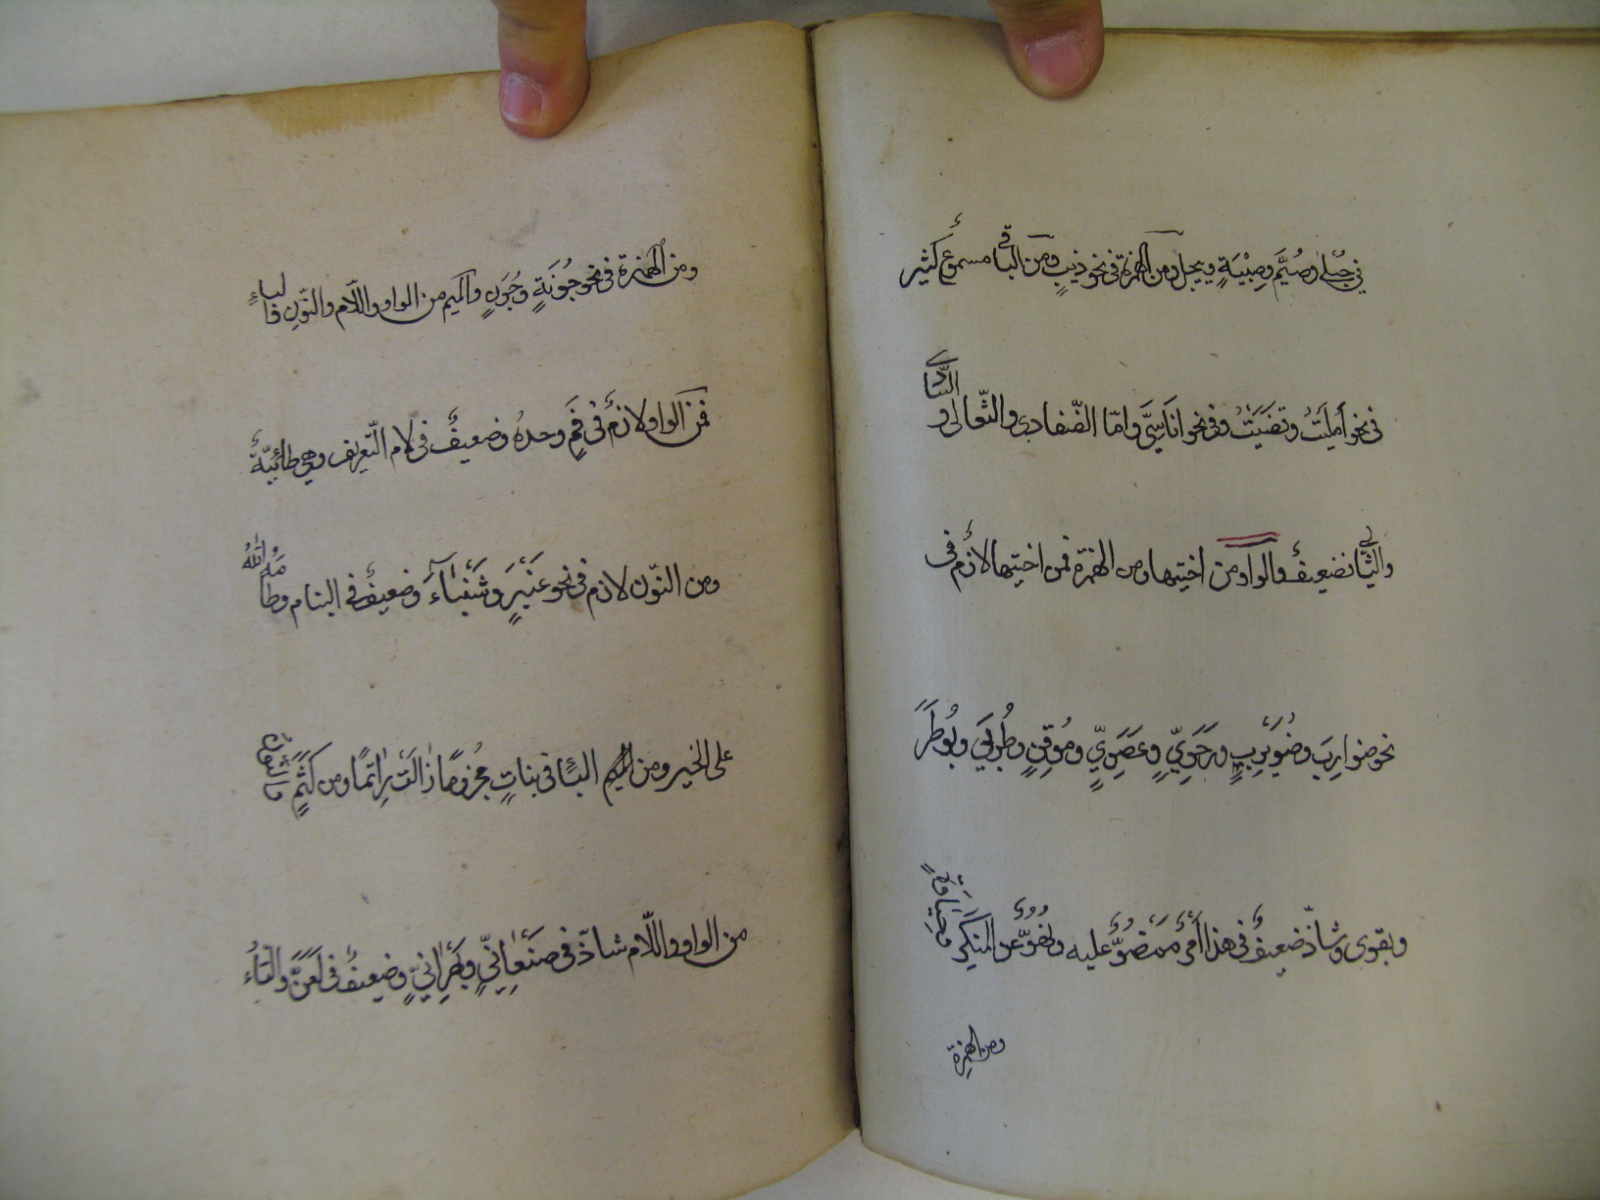 في حبلى وصُيَّم وصِبْيَةٍ وييجل ومن الهمزة في نحو ذيب ومن الباقي مسموع كثير
في نحو أمليت وقصيت وفي نحو اناسيّ وامّا الضّفادى والثّعالى والسّادى
والثّالى فضعيف والواو من اختيها ومن الهمزة فمن اختيها لازم في
نحو ضوارِبَ وضُوَيْرِبٍ ورَحَوِيٍّ وعَصَوِيٍّ ومُوقِنٍ وطُوبَى وبُوطِرَ
وبقوى وشاذّ ضعيف في هذا أمر ممضُوٌّ عليه ونَهُوٌّ عن المنكر وجِبَاوَةٍ
ومن الهمزة
ومن الهمزة في نحو جُونَةٍ وجُوَنٍ والميم من الواو واللّام والنّون والباء
فمن الواو لازم في فمٍ وحده وضعيف في لام التّعريف وهي طائيّة
ومن النّون لازم في نحو عَنْبَرٍ وشَنْبَاءَ وضعيف في البنام وطامه اللّٰه
على الخير ومن الميم البا في بنات مخرٍ وما زلت راتمًا ومن كثمٍ والنّون
من الواو واللّام شاذّ في صنعانيٍّ وبهرانيٍّ وضعيف في لعنّ والتاء